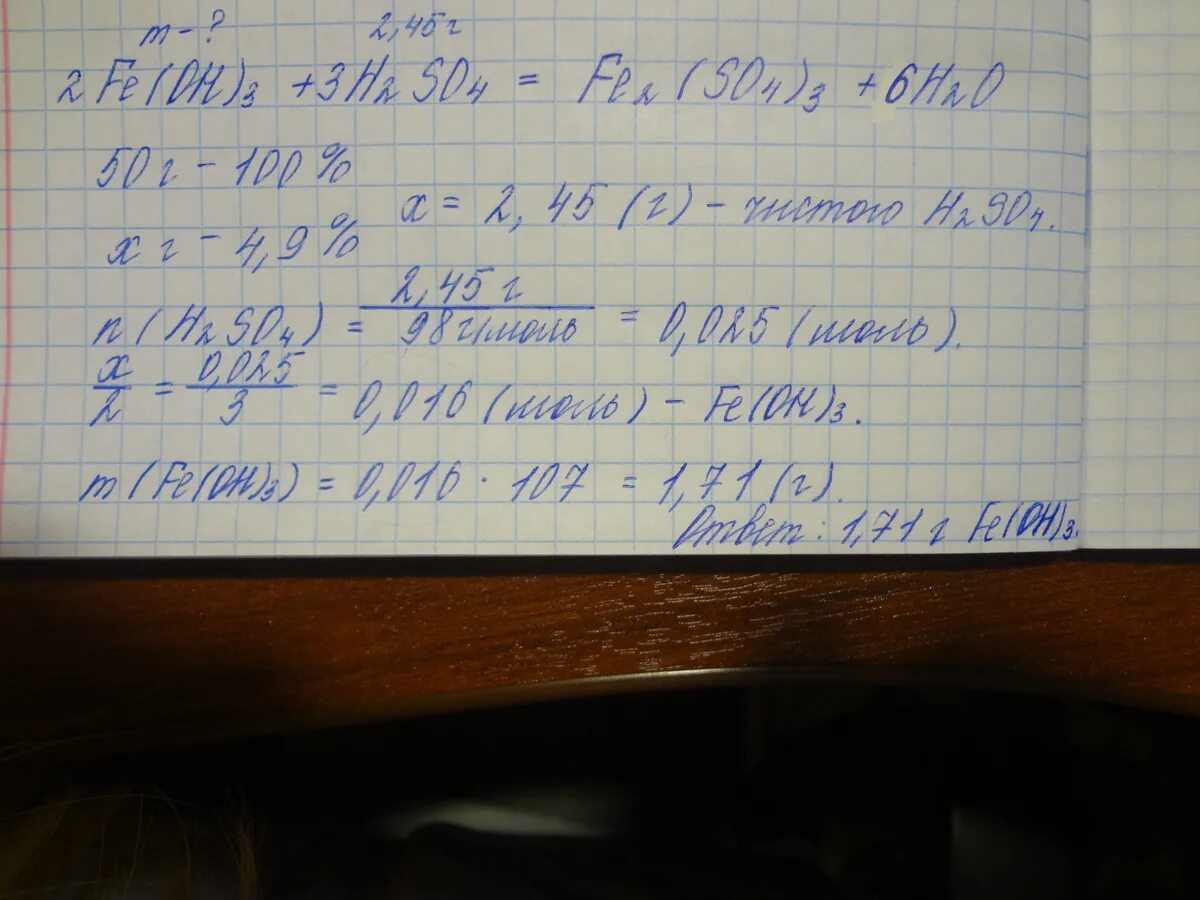 m-? 2,45г
2Fe(OH)3 +3H2SO4 = Fe2(SO4)3 +6H2O
50г - 100%
x = 2,45 (г) - чистого H2SO4.
x г - 4,9%
n(H2SO4) = 2,45г / 98г/моль = 0,025 (моль).
x/2 = 0,025/3 = 0,016 (моль) - Fe(OH)3.
m(Fe(OH)3) = 0,016 · 107 = 1,71 (г).
Ответ: 1,71г Fe(OH)3.